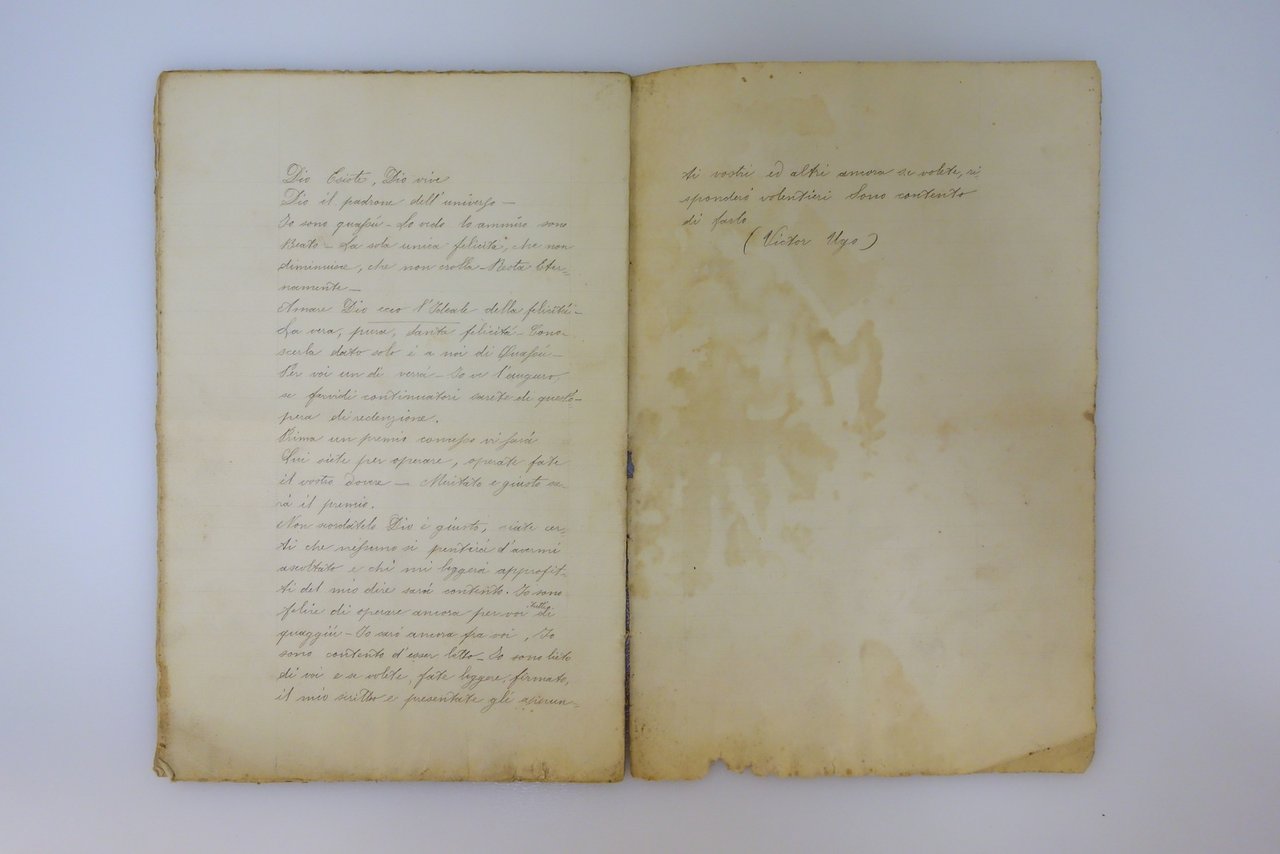 Dio Esiste, Dio vive
Dio il padrone dell'universo —
Io sono quassù — Lo vedo lo ammiro sono
Beato — La sola unica felicità, che non
diminuisce, che non crolla — Resta Eter=
namente —
Amare Dio ecco l'Ideale della felicità —
La vera, pura, santa felicità — Cono-
scerla dato solo è a noi di Quassù —
Per voi un dì verrà — Io ve l'auguro,
se favvidi continuatori sarete di quest'o-
pera di redenzione.
Prima un premio concesso vi sarà
Qui siete per operare, operate fate
il vostro dovere — Meritato e giusto sa-
rà il premio.
Non scordatelo Dio è giusto, siate cer-
ti che nessuno si pentirà d'avermi
ascoltato e chi mi leggerà approfit-
ti del mio dire sarà contento. Io sono
felice di operare ancora per voi tutti di
quaggiù — Io sarò ancora fra voi, Io
sono contento d'esser letto — Io sono lieto
di voi e se volete, fate leggere, firmato,
il mio scritto e presentate gli appun-
ti vostri ed altri ancora se volete, ri-
sponderò volentieri Sono contento
di farlo
(Victor Ugo)